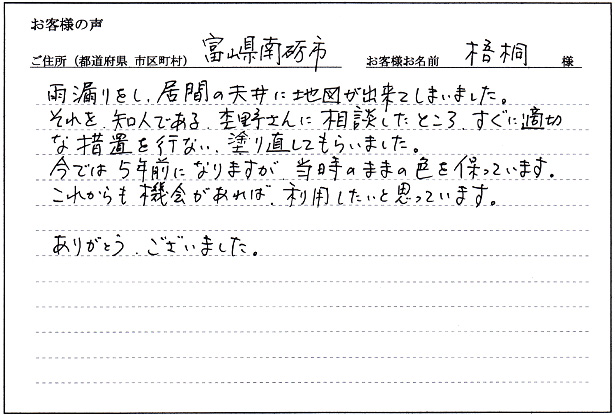 お客様の声
ご住所（都道府県 市区町村） 富山県南砺市 お客様お名前 梧桐 様
雨漏りをし、居間の天井に地図が出来てしまいました。
それを知人である、杢野さんに相談したところ、すぐに適切
な措置を行ない、塗り直してもらいました。
今では5年前になりますが、当時のままの色を保っています。
これからも機会があれば、利用したいと思っています。
ありがとう、ございました。